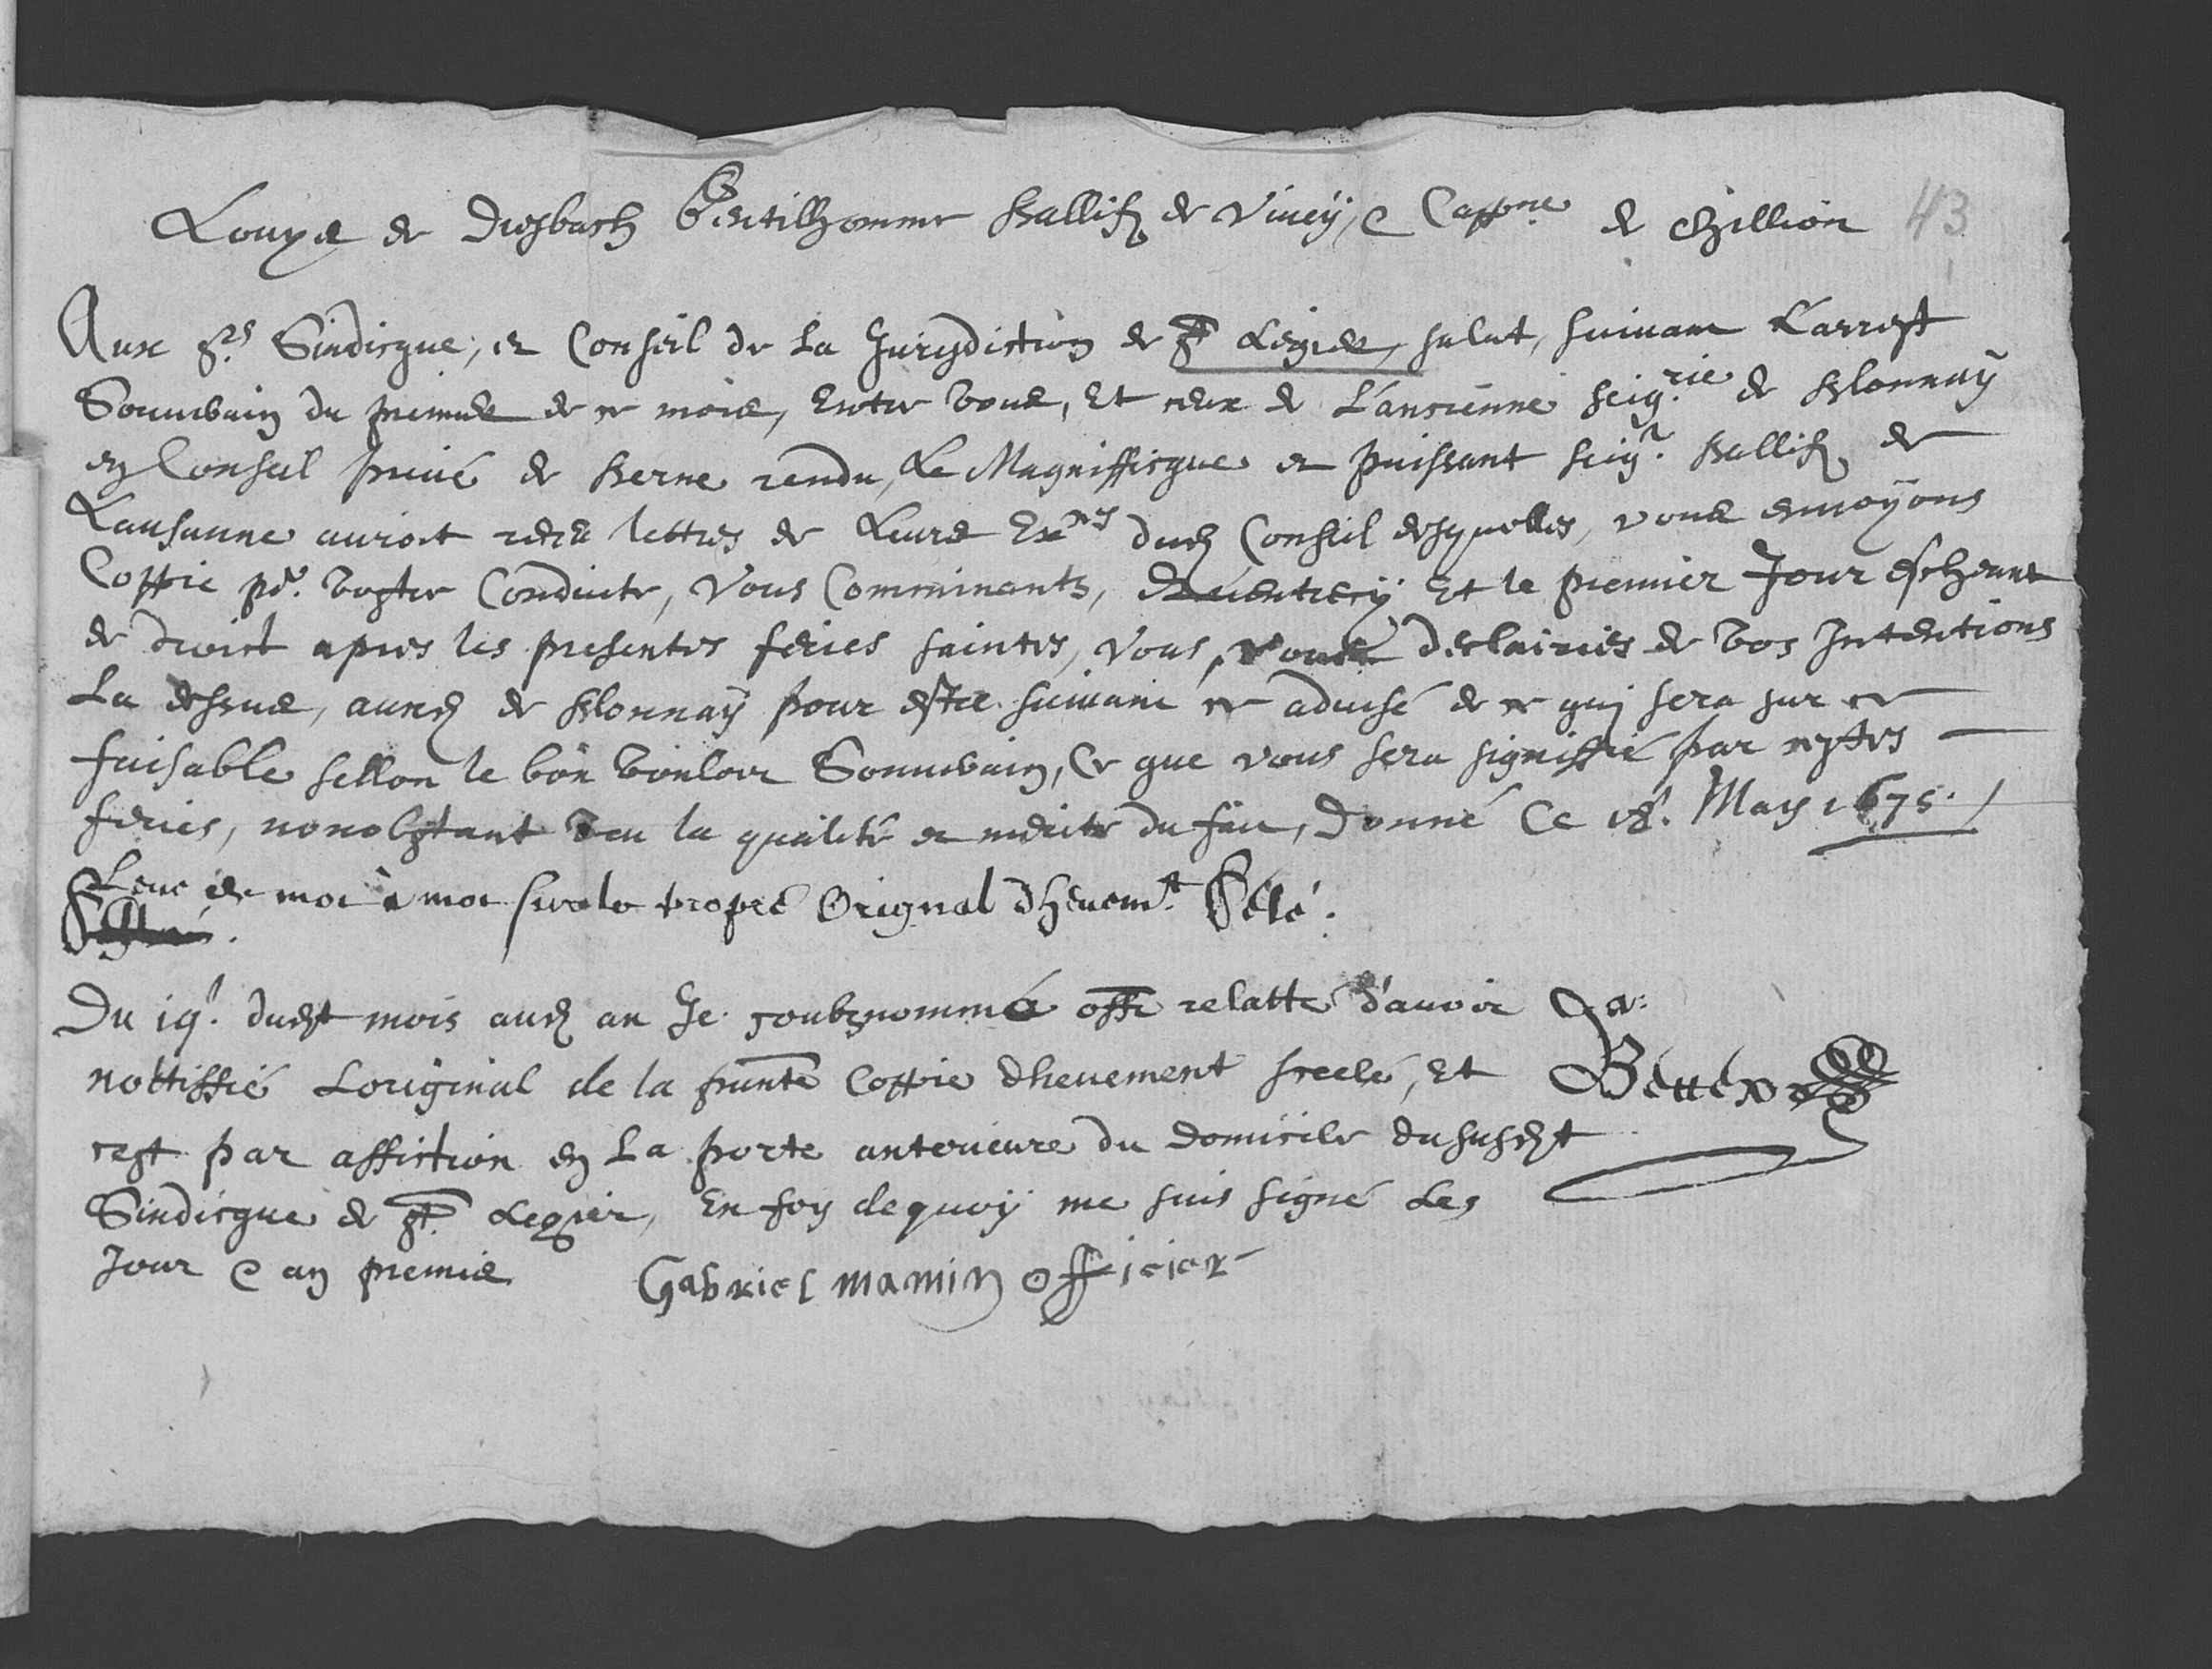 Louys de Diesbach Gentilhomme Ballif de Vivey, e Cappne de Chillion 43
Aux Srs Sindicque, et Conseil de La Jurisdiction de St Legier, salut, suivant L'arrest
Souverain du premier de ce mois, Entre vous, Et ceux de L'ancienne seigrie de Blonnay
en Conseil privé de Berne rendu, Le Magniffique et puissant seigr Ballif de
Lausanne auroit receu lettres de Leurs Exces dud Conseil desquelles, vous envoyons
Coppie pr vostre Conduite, Vous Comminants, Et le premier Jour escheant
de droict apres les presentes feries saintes, Vous, declairies de vos Intentions
La dessus, auxd de Blonnay pour estre suivant ce advisé de ce qui sera sur ce
faisable sellon le bon vouloir Souverain, Ce que vous sera signiffié par cestes
feries, nonobstant veu la qualité et merite du fait, Donné Ce 18e May 1675.
Levé de mot à mot sur le propre Orignal dhevemt Séelé.
Du 19e dudst mois aud an Je soubsnommé offr relatte d'avoir
nottiffié Loriginal de la pnte Coppie dhevement seelé, Et
cest par affiction en La porte anterieure du Domicile du susdst
Sindicque de St Legier, En foy de quoy me suis signé Les
Jour e an premis
Bettex
Gabriel mamin officier